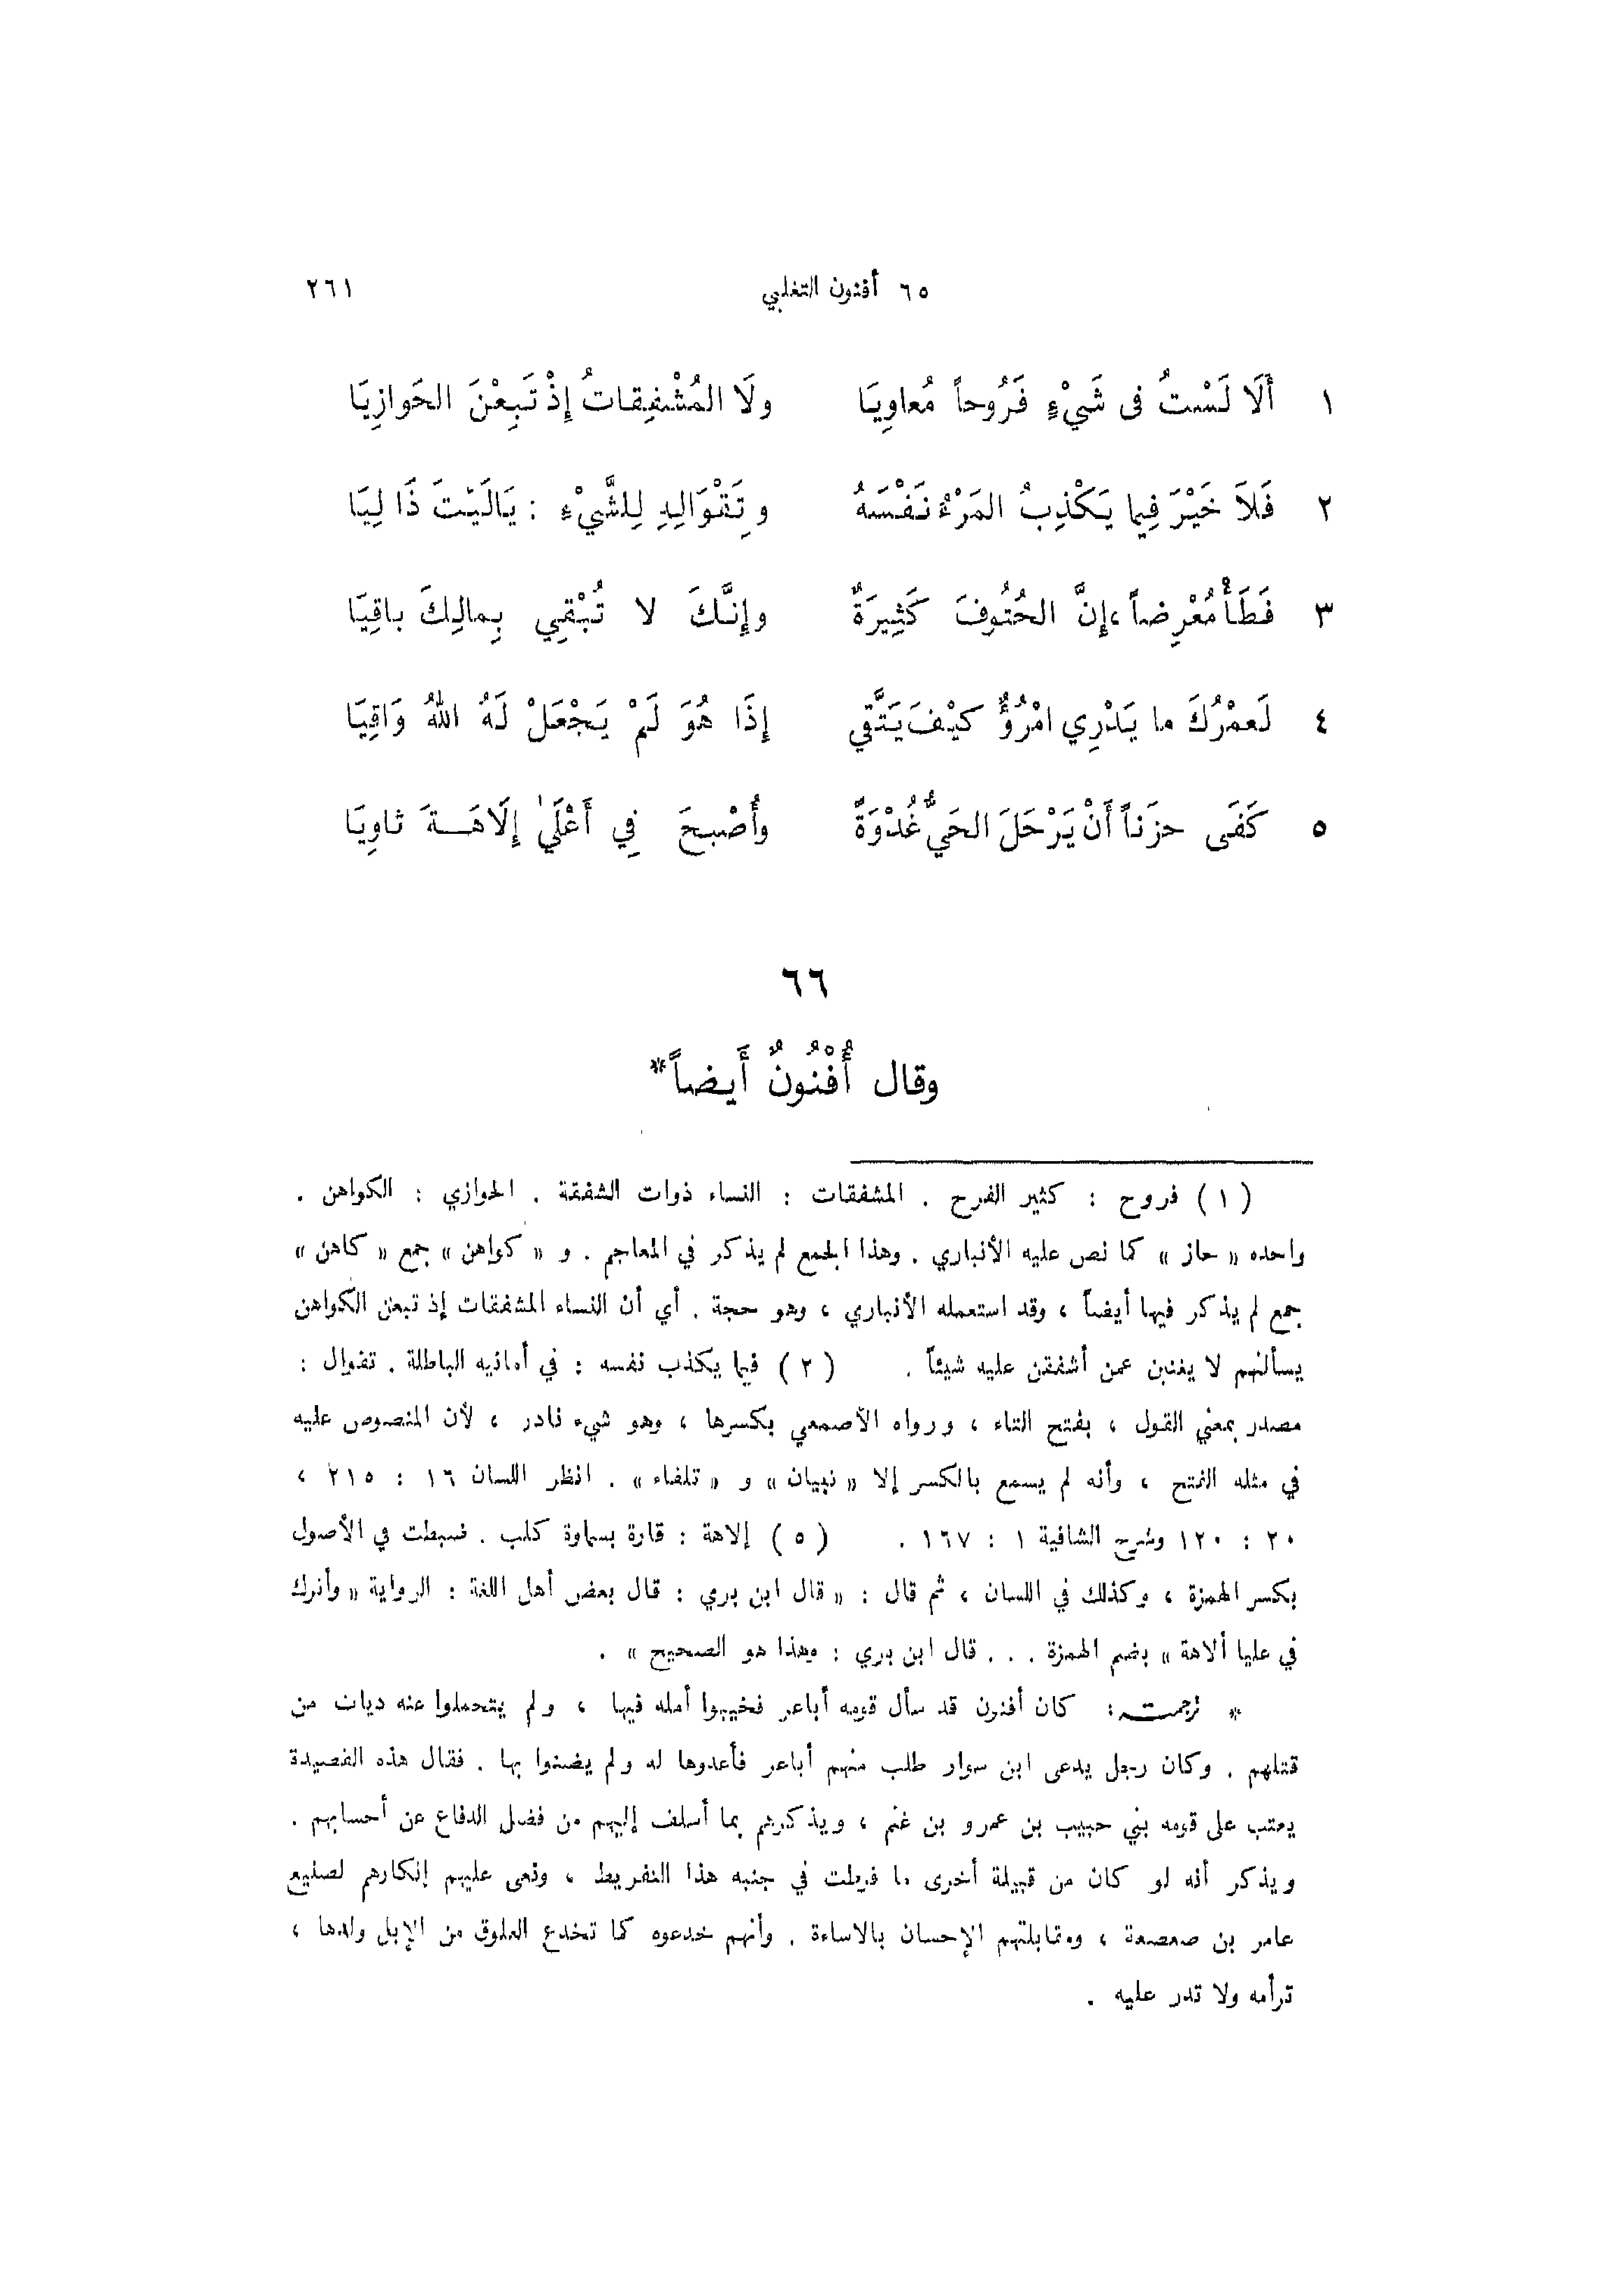 ٦٥ أفنون التغلبي ٢٦١
١ أَلَا لَسْتُ فى شَيْءٍ فَرُوحاً مُعاوِيَا ولَا المُشْفِقاتُ إِذْ تَبِعْنَ الحَوازِيَا
٢ فَلاَ خَيْرَ فِيما يَكْذِبُ المَرْءُ نَفْسَهُ وتِقْوَالِهِ لِلشَّيْءِ : يَالَيْتَ ذَا لِيَا
٣ فَطَأْ مُعْرِضاً ، إِنَّ الحُتُوفَ كَثِيرَةٌ وإِنَّكَ لا تُبْقِي بِمالِكَ باقِيَا
٤ لَعمْرُكَ ما يَدْرِي امْرُؤٌ كيْفَ يَتَّقِي إِذَا هُوَ لَمْ يَجْعَلْ لَهُ اللهُ وَاقِيَا
٥ كَفَى حزَناً أَنْ يَرْحَلَ الحَيُّ غُدْوَةً وأُصْبِحَ فِي أَعْلَىٰ إِلَاهَةَ ثاوِيَا
٦٦
وقال أُفْنُونٌ أَيضاً*
( ١ ) فروح : كثير الفرح . المشفقات : النساء ذوات الشفقة . الحوازي : الكواهن .
واحده « حاز » كما نص عليه الأنباري . وهذا الجمع لم يذكر في المعاجم . و « كواهن » جمع « كاهن »
جمع لم يذكر فيها أيضاً ، وقد استعمله الأنباري ، وهو حجة . أي أن النساء المشفقات إذ تبعن الكواهن
يسألنهم لا يغنين عمن أشفقن عليه شيئاً . ( ٢ ) فيما يكذب نفسه : في أمانيه الباطلة . تقوال :
مصدر بمعنى القول ، بفتح التاء ، ورواه الأصمعي بكسرها ، وهو شيء نادر ، لأن المنصوص عليه
في مثله الفتح ، وأنه لم يسمع بالكسر إلا « تبيان » و « تلقاء » . انظر اللسان ١٦ : ٢١٥ ،
٢٠ : ١٢٠ وشرح الشافية ١ : ١٦٧ . ( ٥ ) إلاهة : قارة بسماوة كلب . ضبطت في الأصول
بكسر الهمزة ، وكذلك في اللسان ، ثم قال : « قال ابن بري : قال بعض أهل اللغة : الرواية « وأترك
في عليا ألاهة » بضم الهمزة . . . قال ابن بري : وهذا هو الصحيح » .
* ترجمته : كان أفنون قد سأل قومه أباعر فخيبوا أمله فيها ، ولم يتحملوا عنه ديات من
قتلهم . وكان رجل يدعى ابن سوار طلب منهم أباعر فأعدوها له ولم يضنوا بها . فقال هذه القصيدة
يعتب على قومه بني حبيب بن عمرو بن غنم ، ويذكرهم بما أسلف إليهم من فضل الدفاع عن أحسابهم .
ويذكر أنه لو كان من قبيلة أخرى ما فرطت في جنبه هذا التفريط ، ونعى عليهم إنكارهم لصنيع
عامر بن صعصعة ، ومقابلتهم الإحسان بالاساءة . وأنهم خدعوه كما تخدع العلوق من الإبل ولدها ،
ترأمه ولا تدر عليه .